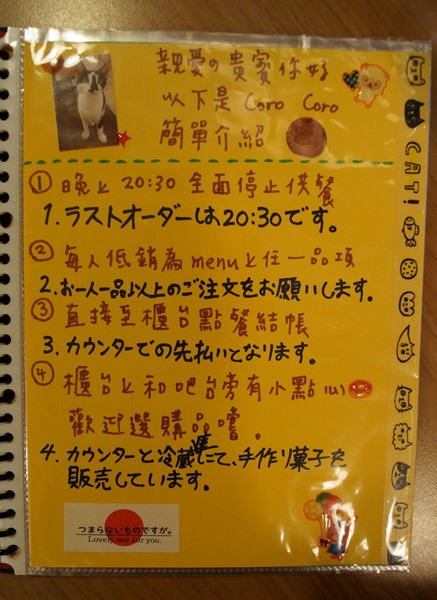 親愛の貴賓你好
以下是 Coro Coro
簡單介紹
① 晚上 20:30 全面停止供餐
1. ラストオーダーは20:30です。
② 每人低銷為menu上任一品項
2. お一人一品以上のご注文をお願いします。
③ 直接至櫃台點餐結帳
3. カウンターでの先払いとなります。
④ 櫃台上和吧台旁有小點心
歡迎選購品嚐。
4. カウンターと冷蔵庫にて、手作り菓子を
販売しています。
つまらないものですが。
Lovely one for you.
CAT!